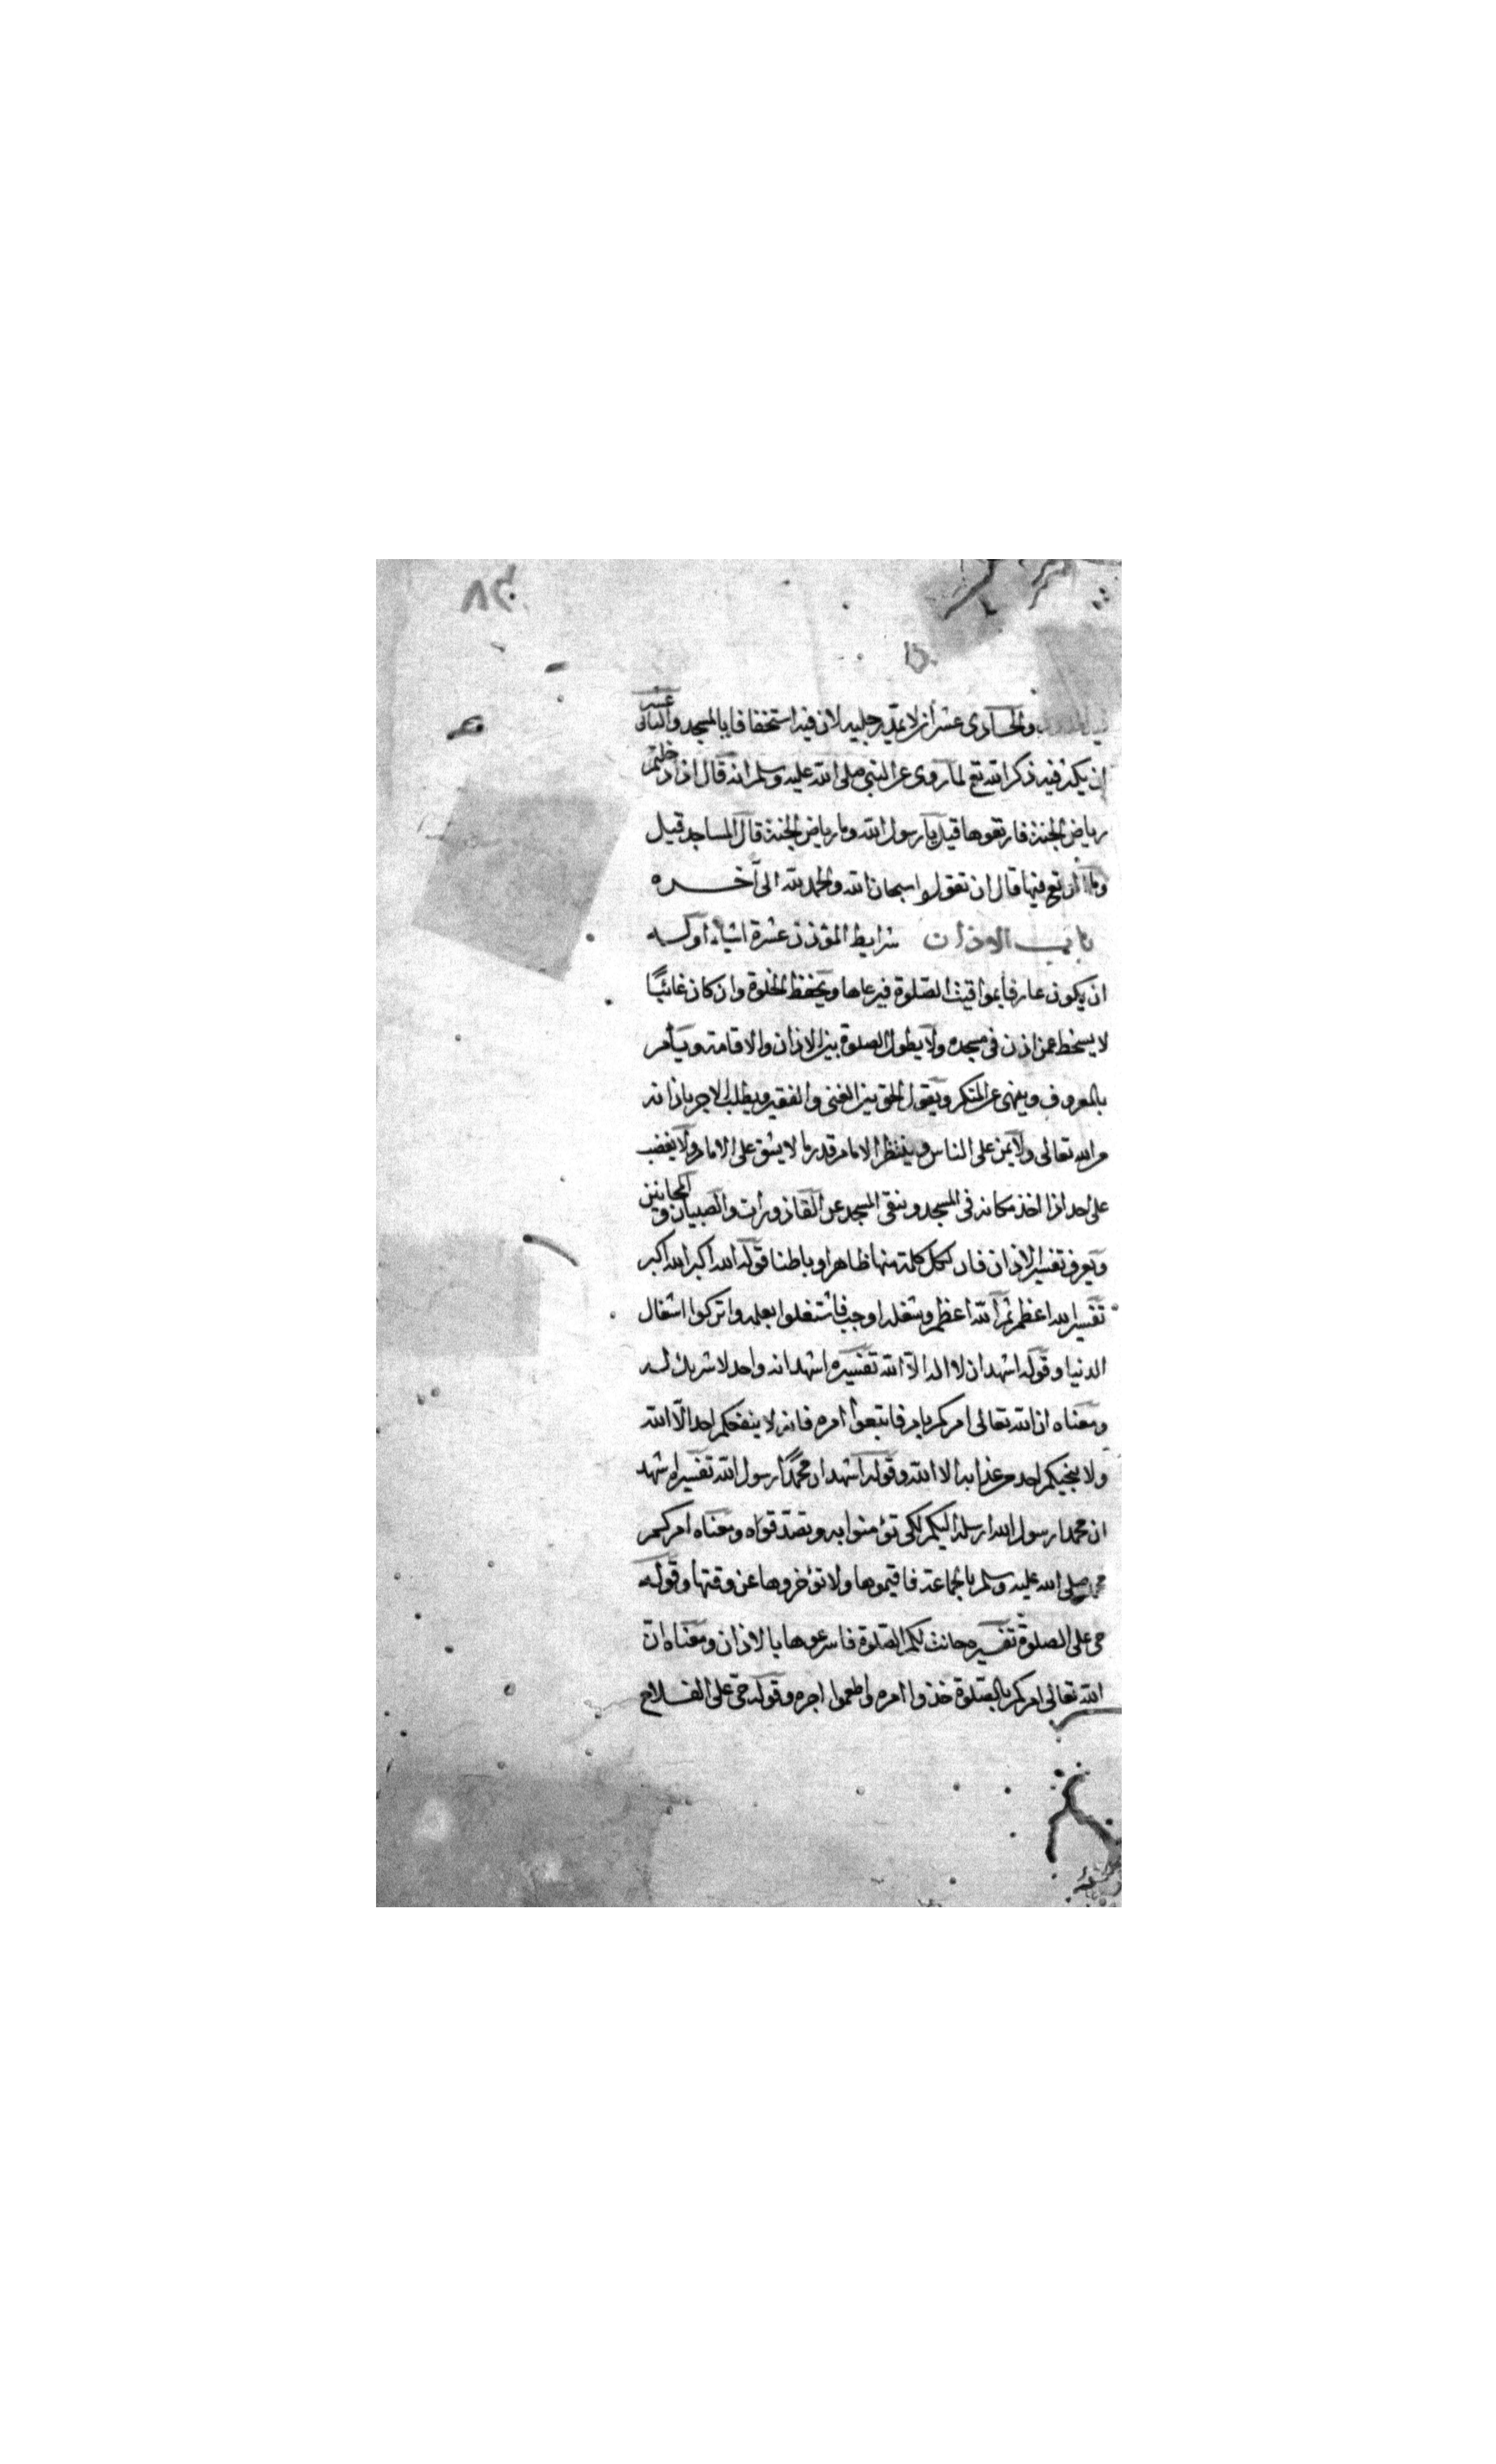 ٨٢
والحادى عشر ان لا يمد رجليه لان فيه استخفافا بالمسجد والثانى عشر
ان يكثر فيه ذكر الله تع لما روى عن النبى صلى الله عليه وسلم انه قال اذا دخلتم
رياض الجنة فارتعوها قيل يا رسول الله وما رياض الجنة قال المساجد قيل
وما الرتع فيها قال ان تقولوا سبحان الله والحمد لله الى آخره
باب الاذان شرايط المؤذن عشرة اشياء اوله
ان يكون عارفا بمواقيت الصلوة فيرعاها ويحفظ الخلوة وان كان غائبًا
لا يسخط عمن اذن فى مسجده ولا يطول الصلوة بين الاذان والاقامة ويأمر
بالمعروف وينهى عن المنكر ويقول الحق بين الغنى والفقير ويطلب الاجر باذانه
من الله تعالى ولا يمن على الناس وينتظر الامام قدر ما لا يشق على الامام ولا يغضب
على احد اذا اخذ مكانه فى المسجد وينقى المسجد عن القاذورات والصبيان والمجانين
ويعرف تفسير الاذان فان لكل كلمة منها ظاهرا وباطنا قوله الله اكبر الله اكبر
تفسير الله اعظم ثم الله اعظم وشغله اوجب فاشتغلوا بعلمه واتركوا اشغال
الدنيا وقوله اشهد ان لا اله الا الله تفسيره اشهد انه واحد لا شريك له
ومعناه ان الله تعالى امركم بامر فاتبعوا امره فانه لا ينفعكم احد الّا الله
ولا ينجيكم احد من عذابه الا الله وقوله اشهد ان محمدًا رسول الله تفسيره اشهد
ان محمدا رسول الله ارسله اليكم لكى تؤمنوا به وتصدقواه ومعناه امركم
محمد صلى الله عليه وسلم بالجماعة فاقيموها ولا تؤخروها عن وقتها وقوله
حى على الصلوة تفسيره حانت لكم الصلوة فاسرعوها بالاذان ومعناه انّ
الله تعالى امركم بالصلوة خذوا امره واطعموا اجره وقوله حىّ على الفلاح